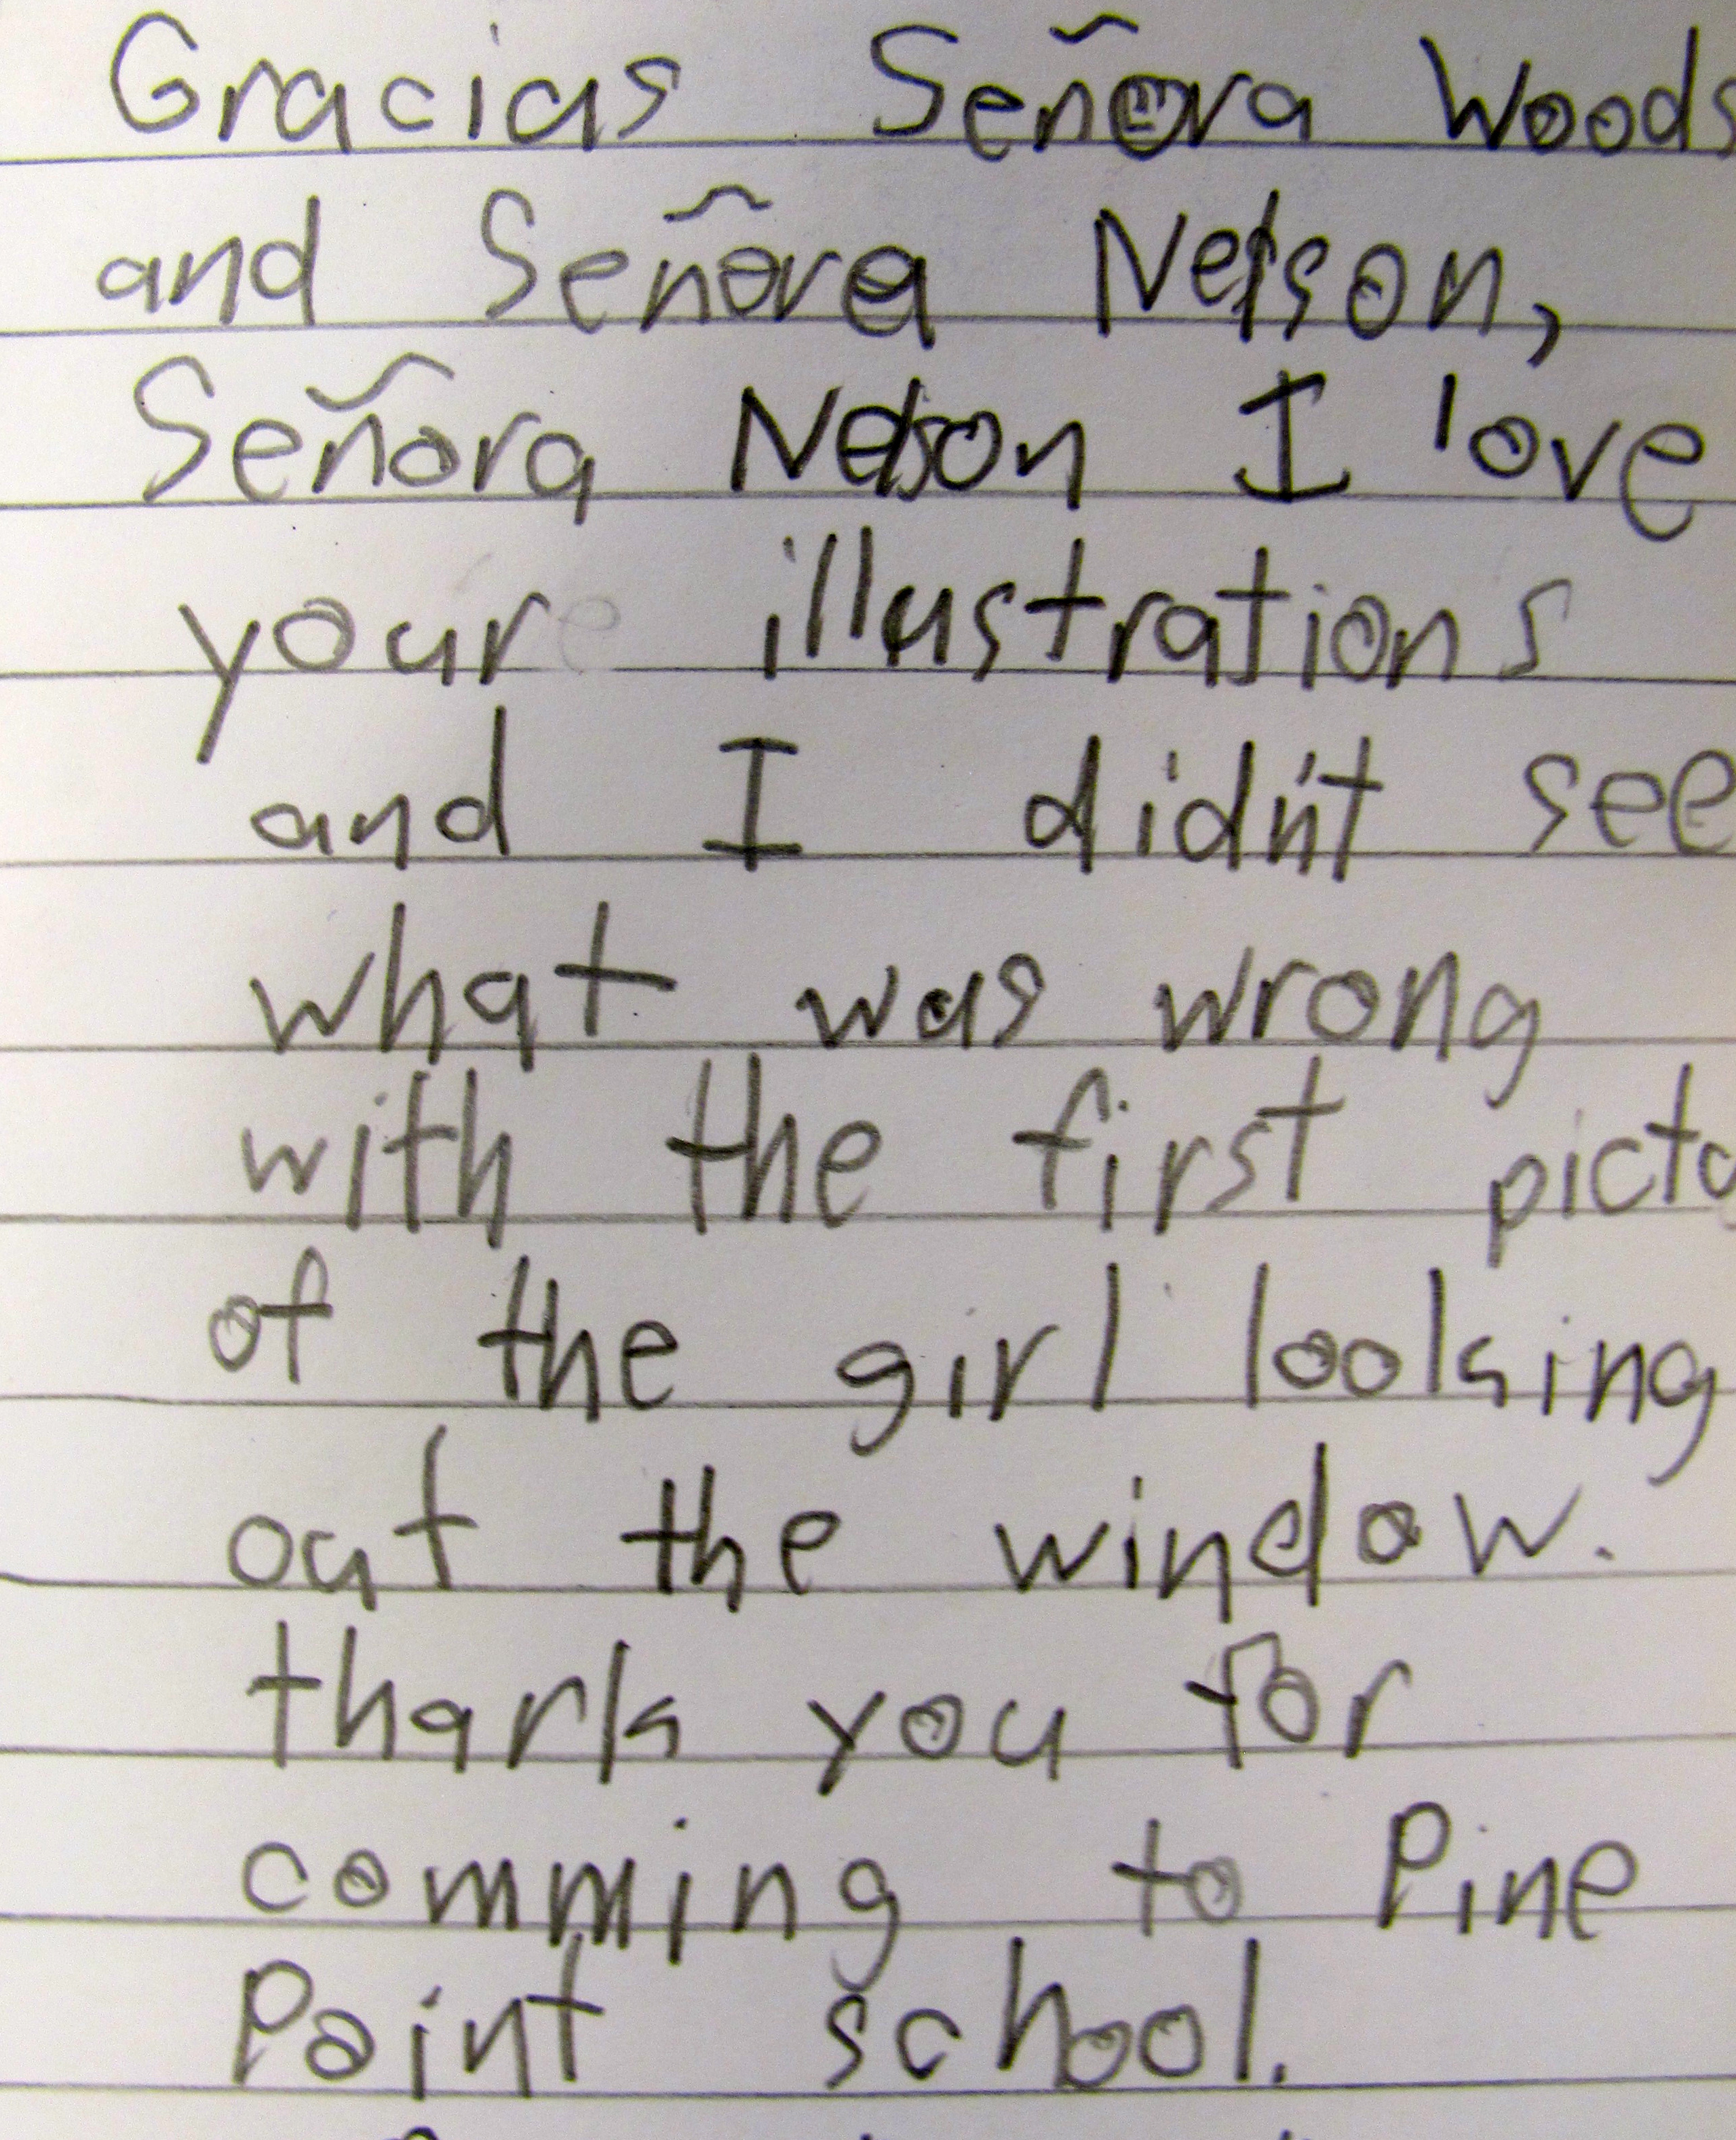 Gracias Señora Woods
and Señora Nelson,
Señora Nelson I love
your illustrations
and I didn't see
what was wrong
with the first
of the girl looking
out the window.
thank you for
comming to Pine
Point school.